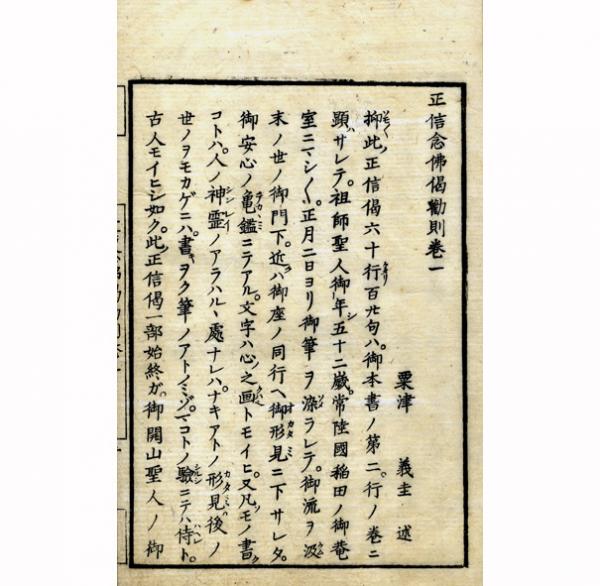 正信念佛偈勸則卷一
粟津 義圭 述
抑此正信偈六十行百廿句ハ。御本書ノ第二。行ノ卷ニ
顕ハサレテ。祖師聖人御年五十二歳。常陸國稲田ノ御菴
室ニマシ〱。正月二日ヨリ御筆ヲ染ラレテ。御流ヲ汲
末ノ世ノ御門下。近ハ御座ノ同行ヘ御形見ニ下サレタ。
御安心ノ亀鑑ニテアル。文字ハ心ノ之画トモイヒ。又凡ソモノ書
コトハ。人ノ神霊ノアラハルヽ處ナレハ。ナキアトノ形見後ノ
世ノヲモカゲニハ。書ヲク筆ノアトノミゾ。マコトノ験ニテハ侍ト。
古人モイヒシ如ク。此正信偈一部始終ガ。御開山聖人ノ御